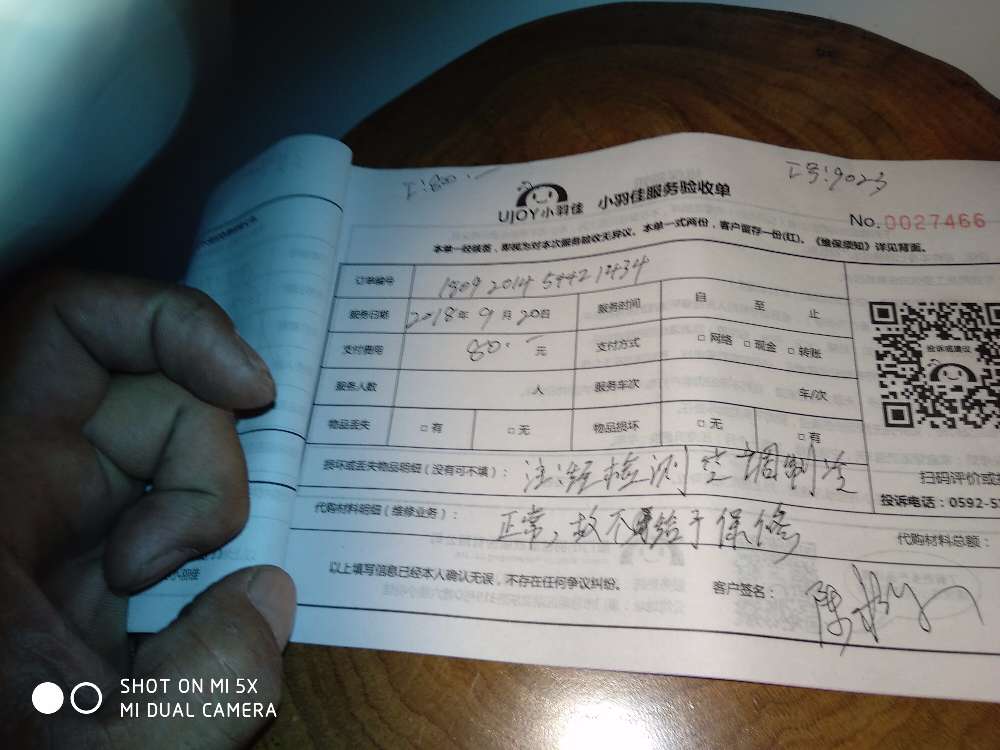 工号:9023
UJOY小羽佳 小羽佳服务验收单
No.0027466
本单一经核签,即视为对本次服务验收无异议。本单一式两份,客户留存一份(红)。《维保须知》详见背面。
订单编号
服务日期 2018年9月20日 服务时间 自 至 止
支付费用 80.一 元 支付方式 □网络 □现金 □转账
服务人数 人 服务车次 车/次
物品丢失 □有 □无 物品损坏 □无 □有
投诉或建议
损坏或丢失物品明细(没有可不填): 注:经检测空调制冷
扫码评价或
投诉电话:0592-5
代购材料明细(维修业务): 正常,故不给予保修
代购材料总额:
以上填写信息已经本人确认无误,不存在任何争议纠纷。 客户签名: 陈
小羽佳
SHOT ON MI 5X
MI DUAL CAMERA